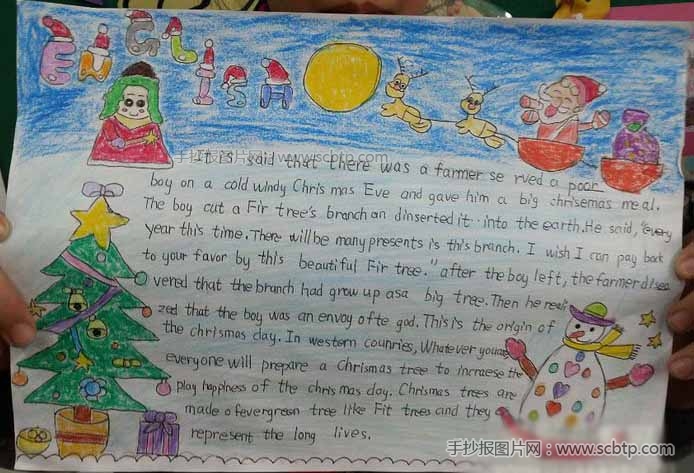 ENGLISH
手抄报图片网 www.scbtp.com
It is said that there was a farmer se rved a poor
boy on a cold windy Chris mas Eve and gave him a big chrisemas meal.
The boy cut a Fir tree's branch an dinserted it into the earth. He said, "every
year this time. There will be many presents is this branch. I wish I can pay back
to your favor by this beautiful Fir tree." after the boy left, the farmer disco
vered that the branch had grow up asa big tree. Then he reali
zed that the boy was an envoy ofte god. This is the origin of
the chrismas day. In western counries, Whatever youare
everyone will prepare a Chrismas tree to incraese the
play happiness of the chris mas day. Chrismas trees are
made o fevergreen tree like Fit trees and they
represent the long lives.
手抄报图片网：www.scbtp.com